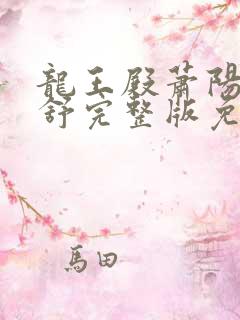 龍王殿蕭陽
舒完整版免
馬田